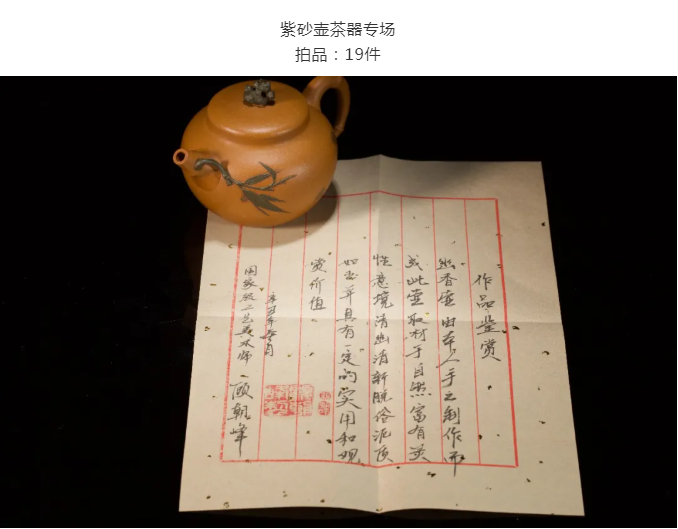 紫砂壶茶器专场
拍品：19件
作品鉴赏
幽香壶由本人手工制作而
成此壶取材于自然富有灵
性意境清幽清新脱俗泥质
如玉并具有一定的实用和观
赏价值
年春月
国家级工艺美术师 顾朝峰